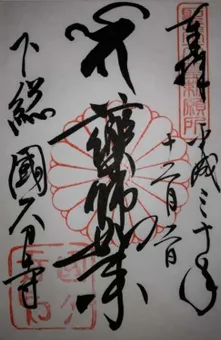 奉拝
平成三十年
十二月二日
薬師如来
下総國分寺